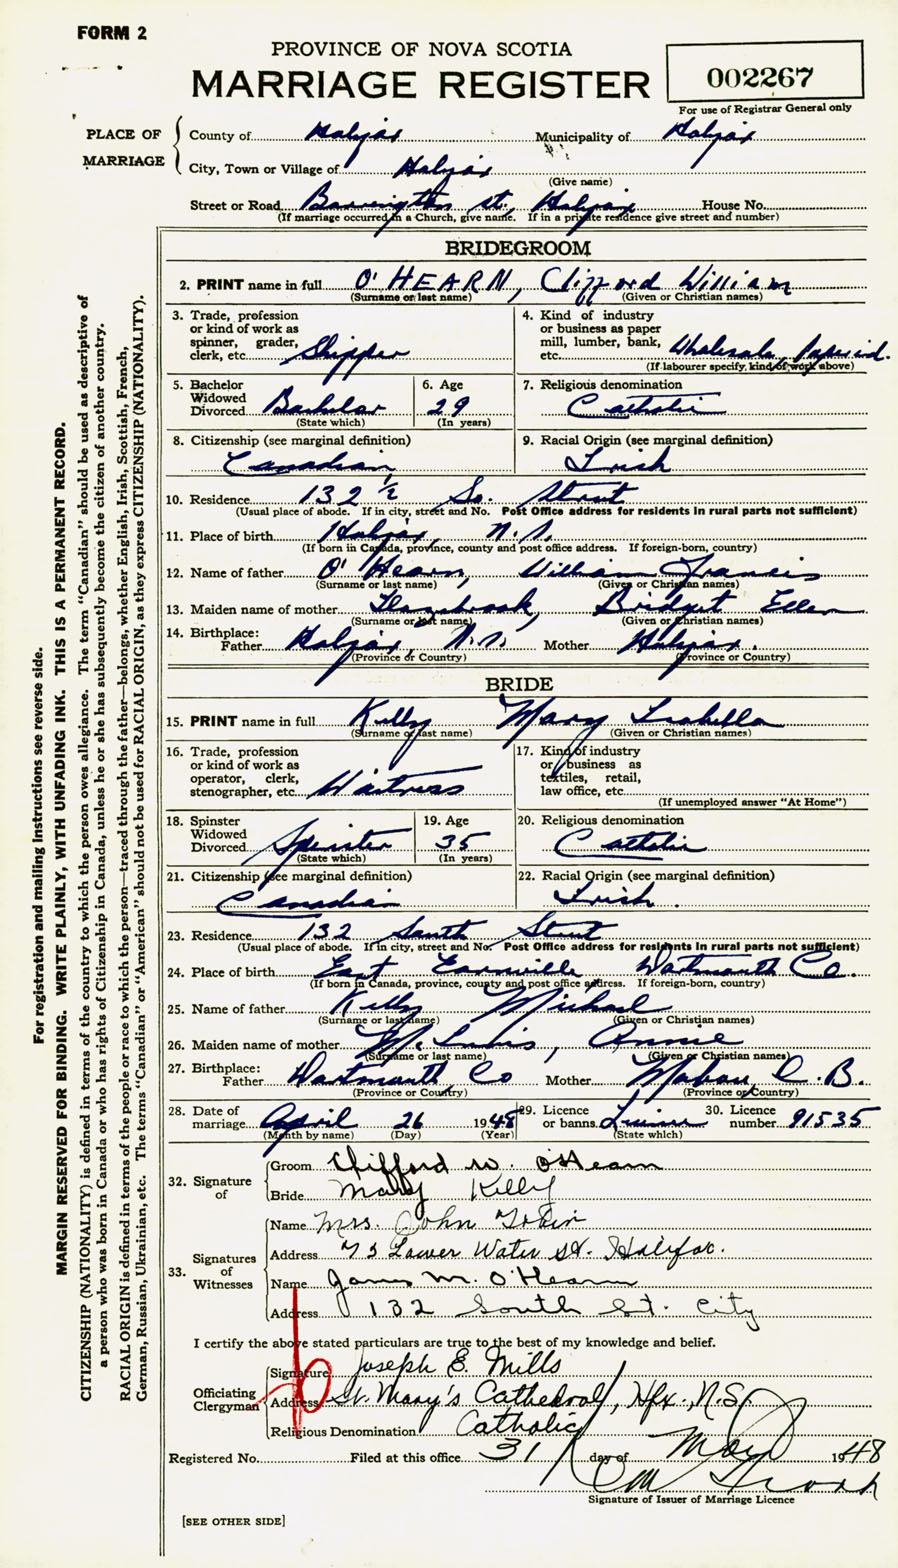 FORM 2
PROVINCE OF NOVA SCOTIA
MARRIAGE REGISTER
002267
For use of Registrar General only
PLACE OF MARRIAGE
County of Halifax Municipality of Halifax
City, Town or Village of Halifax
(Give name)
Street or Road Barrington St., Halifax House No.
(If marriage occurred in a Church, give name. If in a private residence give street and number)
BRIDEGROOM
2. PRINT name in full O'HEARN, Clifford William
(Surname or last name) (Given or Christian names)
3. Trade, profession or kind of work as spinner, grader, clerk, etc. Shipper
4. Kind of industry or business as paper mill, lumber, bank, etc. Wholesale Paper ind.
(If labourer specify kind of work above)
5. Bachelor Widowed Divorced Bachelor
(State which)
6. Age 29
(In years)
7. Religious denomination
Catholic
8. Citizenship (see marginal definition)
Canadian
9. Racial Origin (see marginal definition)
Irish
10. Residence 132 1/2 So. Street
(Usual place of abode. If in city, street and No. Post Office address for residents in rural parts not sufficient)
11. Place of birth Halifax, N.S.
(If born in Canada, province, county and post office address. If foreign-born, country)
12. Name of father O'Hearn, William Francis
(Surname or last name) (Given or Christian names)
13. Maiden name of mother Bridget Ellen
(Surname or last name) (Given or Christian names)
14. Birthplace:
Father Halifax, N.S. Mother Halifax.
(Province or Country) (Province or Country)
BRIDE
15. PRINT name in full Kelly Mary Isabella
(Surname or last name) (Given or Christian names)
16. Trade, profession or kind of work as operator, clerk, stenographer, etc. Waitress
17. Kind of industry or business as textiles, retail, law office, etc.
(If unemployed answer "At Home")
18. Spinster Widowed Divorced Spinster
(State which)
19. Age 35
(In years)
20. Religious denomination
Catholic
21. Citizenship (see marginal definition)
Canadian
22. Racial Origin (see marginal definition)
Irish.
23. Residence 132 South Street
(Usual place of abode. If in city, street and No. Post Office address for residents in rural parts not sufficient)
24. Place of birth East Dartmouth Co.
(If born in Canada, province, county and post office address. If foreign-born, country)
25. Name of father Kelly Michael
(Surname or last name) (Given or Christian names)
26. Maiden name of mother Annie
(Surname or last name) (Given or Christian names)
27. Birthplace:
Father Dartmouth Co Mother Mabou, C.B.
(Province or Country) (Province or Country)
28. Date of marriage April 26 1948
(Month by name) (Day) (Year)
29. Licence or banns
(State which)
30. Licence number 91535
32. Signature of
Groom Clifford W. O'Hearn
Bride Mary Kelly
33. Signatures of Witnesses
Name Mrs. John Tobin
Address 73 Lower Water St. Halifax.
Name James M. O'Hearn
Address 132 South St. City
I certify the above stated particulars are true to the best of my knowledge and belief.
Officiating Clergyman
Signature Joseph E. Mills
Address St. Mary's Cathedral, Hfx. N.S.
Religious Denomination Catholic
Registered No. Filed at this office 31 day of May 1948
Signature of Issuer of Marriage Licence
[SEE OTHER SIDE]
For registration and mailing instructions see reverse side.
MARGIN RESERVED FOR BINDING. WRITE PLAINLY, WITH UNFADING INK. THIS IS A PERMANENT RECORD.
CITIZENSHIP (NATIONALITY) is defined in terms of the country to which the person owes allegiance. The term "Canadian" should be used as descriptive of
a person who was born in Canada or who has rights of Citizenship in Canada, unless he or she has subsequently become the citizen of another country.
RACIAL ORIGIN is defined in terms of the people or race to which the person—traced through the father—belongs, whether English, Irish, Scottish, French,
German, Russian, Ukrainian, etc. The terms "Canadian" or "American" should not be used for RACIAL ORIGIN, as they express CITIZENSHIP (NATIONALITY).